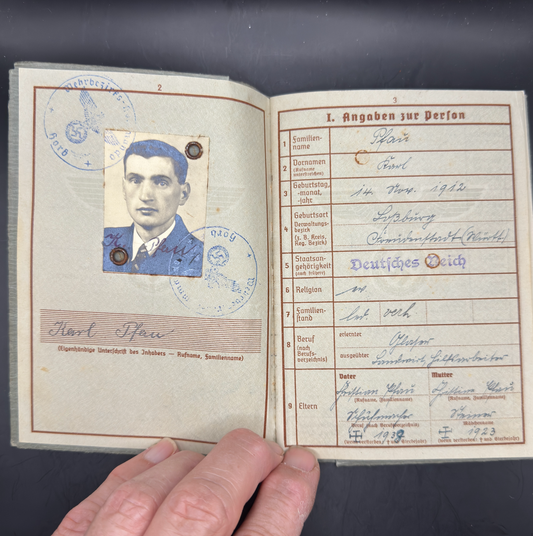 2
Horb
Karl Pfau
(Eigenhändige Unterschrift des Inhabers — Rufname, Familienname)
3
I. Angaben zur Person
1 Familien-
name
Pfau
2 Vornamen
(Rufname
unterstreichen)
Karl
3 Geburtstag,
-monat,
-jahr
14. Nov. 1912
4 Geburtsort
Verwaltungs-
bezirk
(z. B. Kreis,
Reg. Bezirk)
Loßburg
Freudenstadt (Württ)
5 Staatsan-
gehörigkeit
(auch frühere)
Deutsches Reich
6 Religion
ev.
7 Familien-
stand
led. verh
8 Beruf
(nach
Berufs-
verzeichnis)
erlernter
Glaser
ausgeübter
Landwirt, Hilfsarbeiter
9 Eltern
Vater
Christian Pfau
(Rufname, Familienname)
Schuhmacher
(Beruf nach Berufsverzeichnis)
1939
Mutter
Pfau
(Rufname, Familienname)
(Mädchenname)
1923